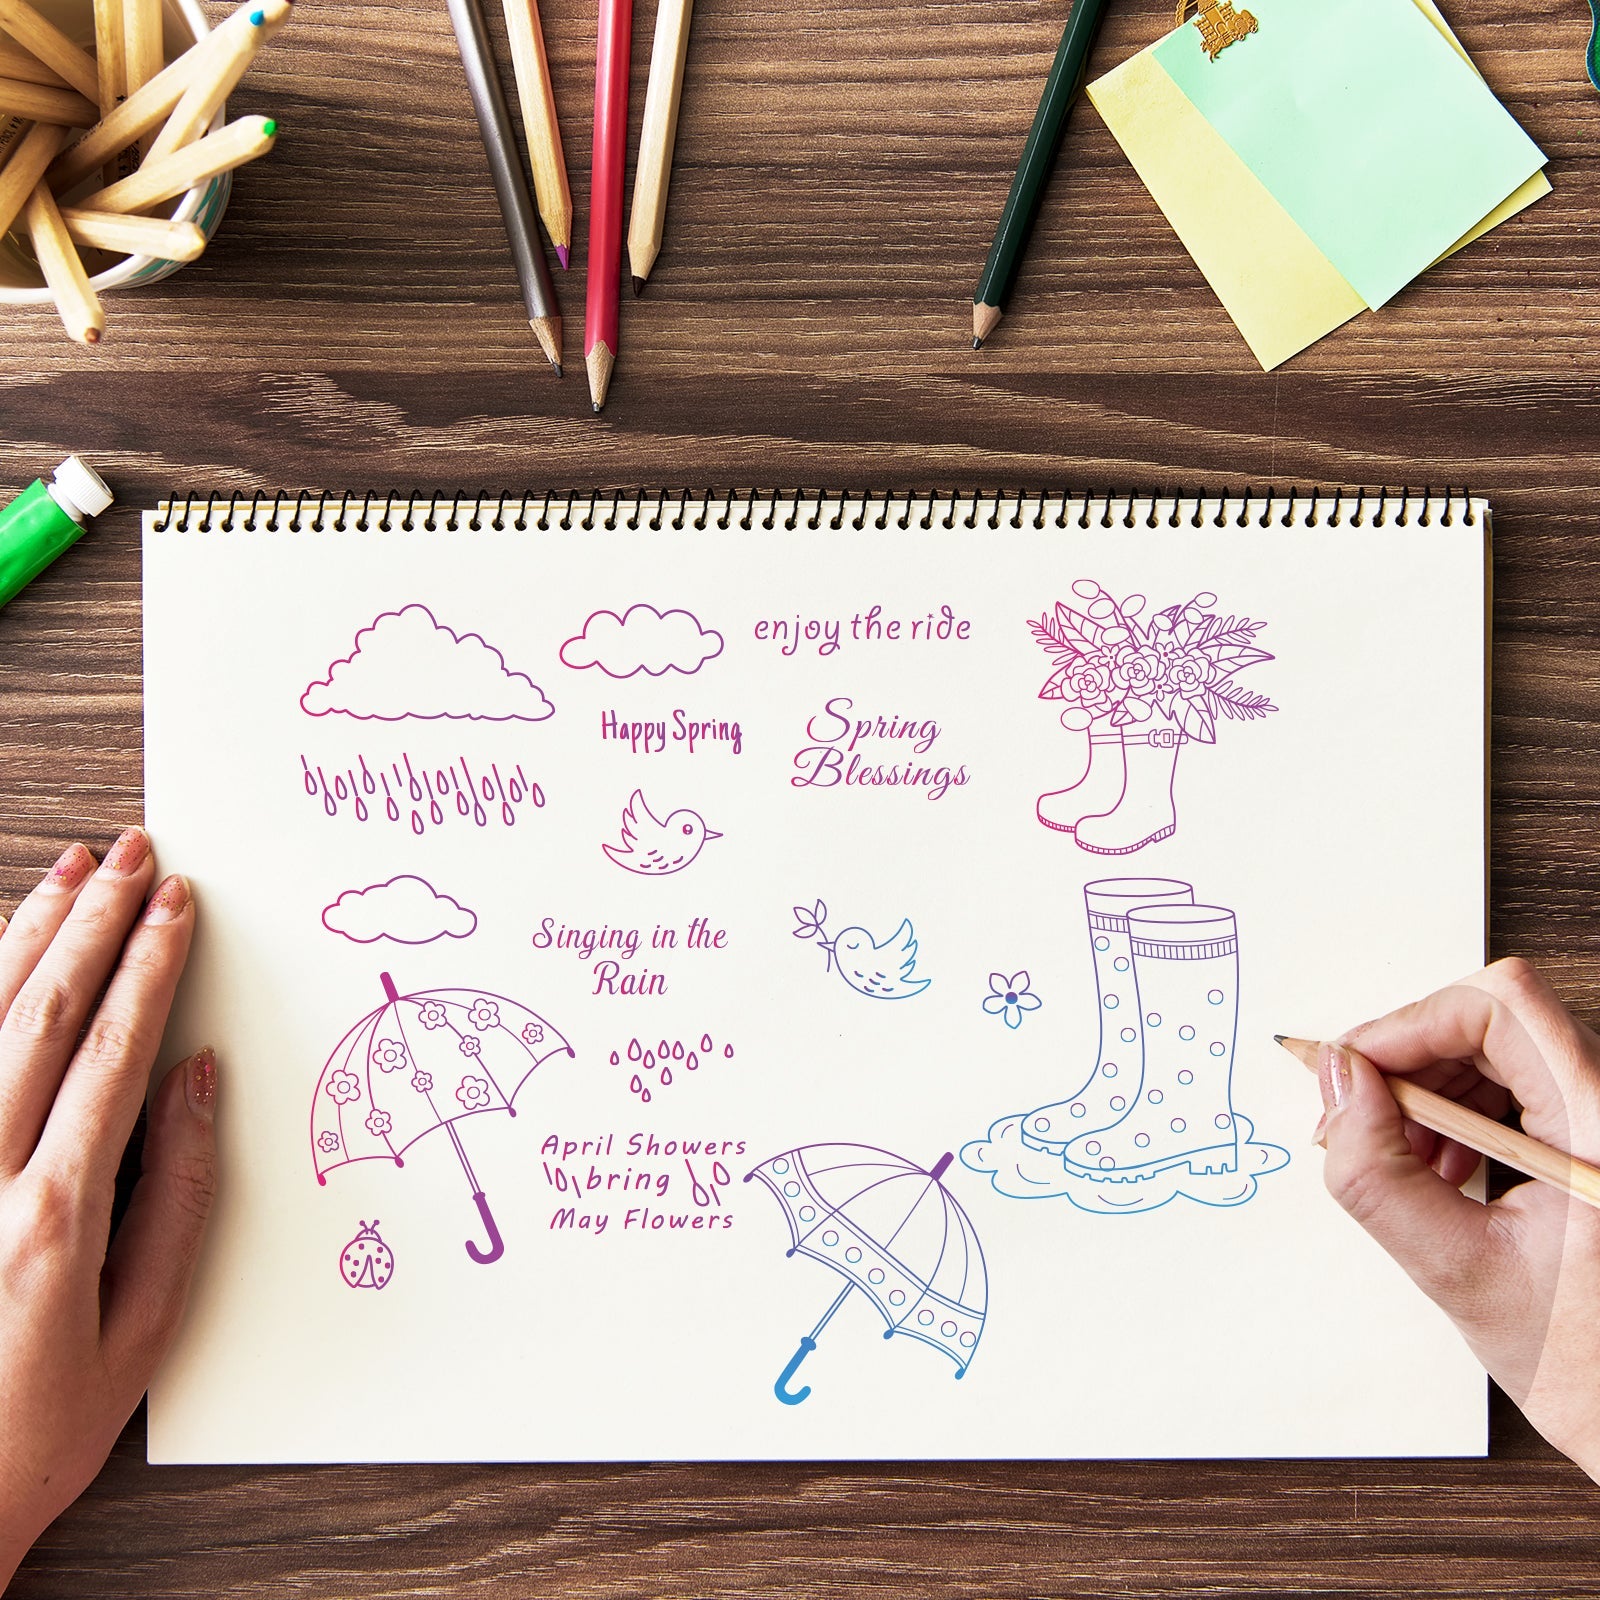 enjoy the ride
Happy Spring
Spring
Blessings
Singing in the
Rain
April Showers
bring
May Flowers